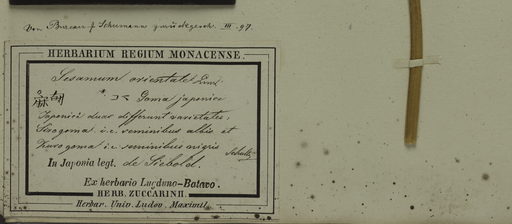 Von Bureau f. Schumann zurückgesch. III. 97.
HERBARIUM REGIUM MONACENSE.
Sesamum orientale Linn.
胡麻 ゴマ Goma japonice
Japonici duas differunt varietates,
Sirogoma i.e. seminibus albis et
Kurogoma i.e. seminibus nigris
In Japonia legt. de Siebold.
Ex herbario Lugduno-Batavo.
HERB. ZUCCARINII.
Herbar. Univ. Ludov. Maximil.